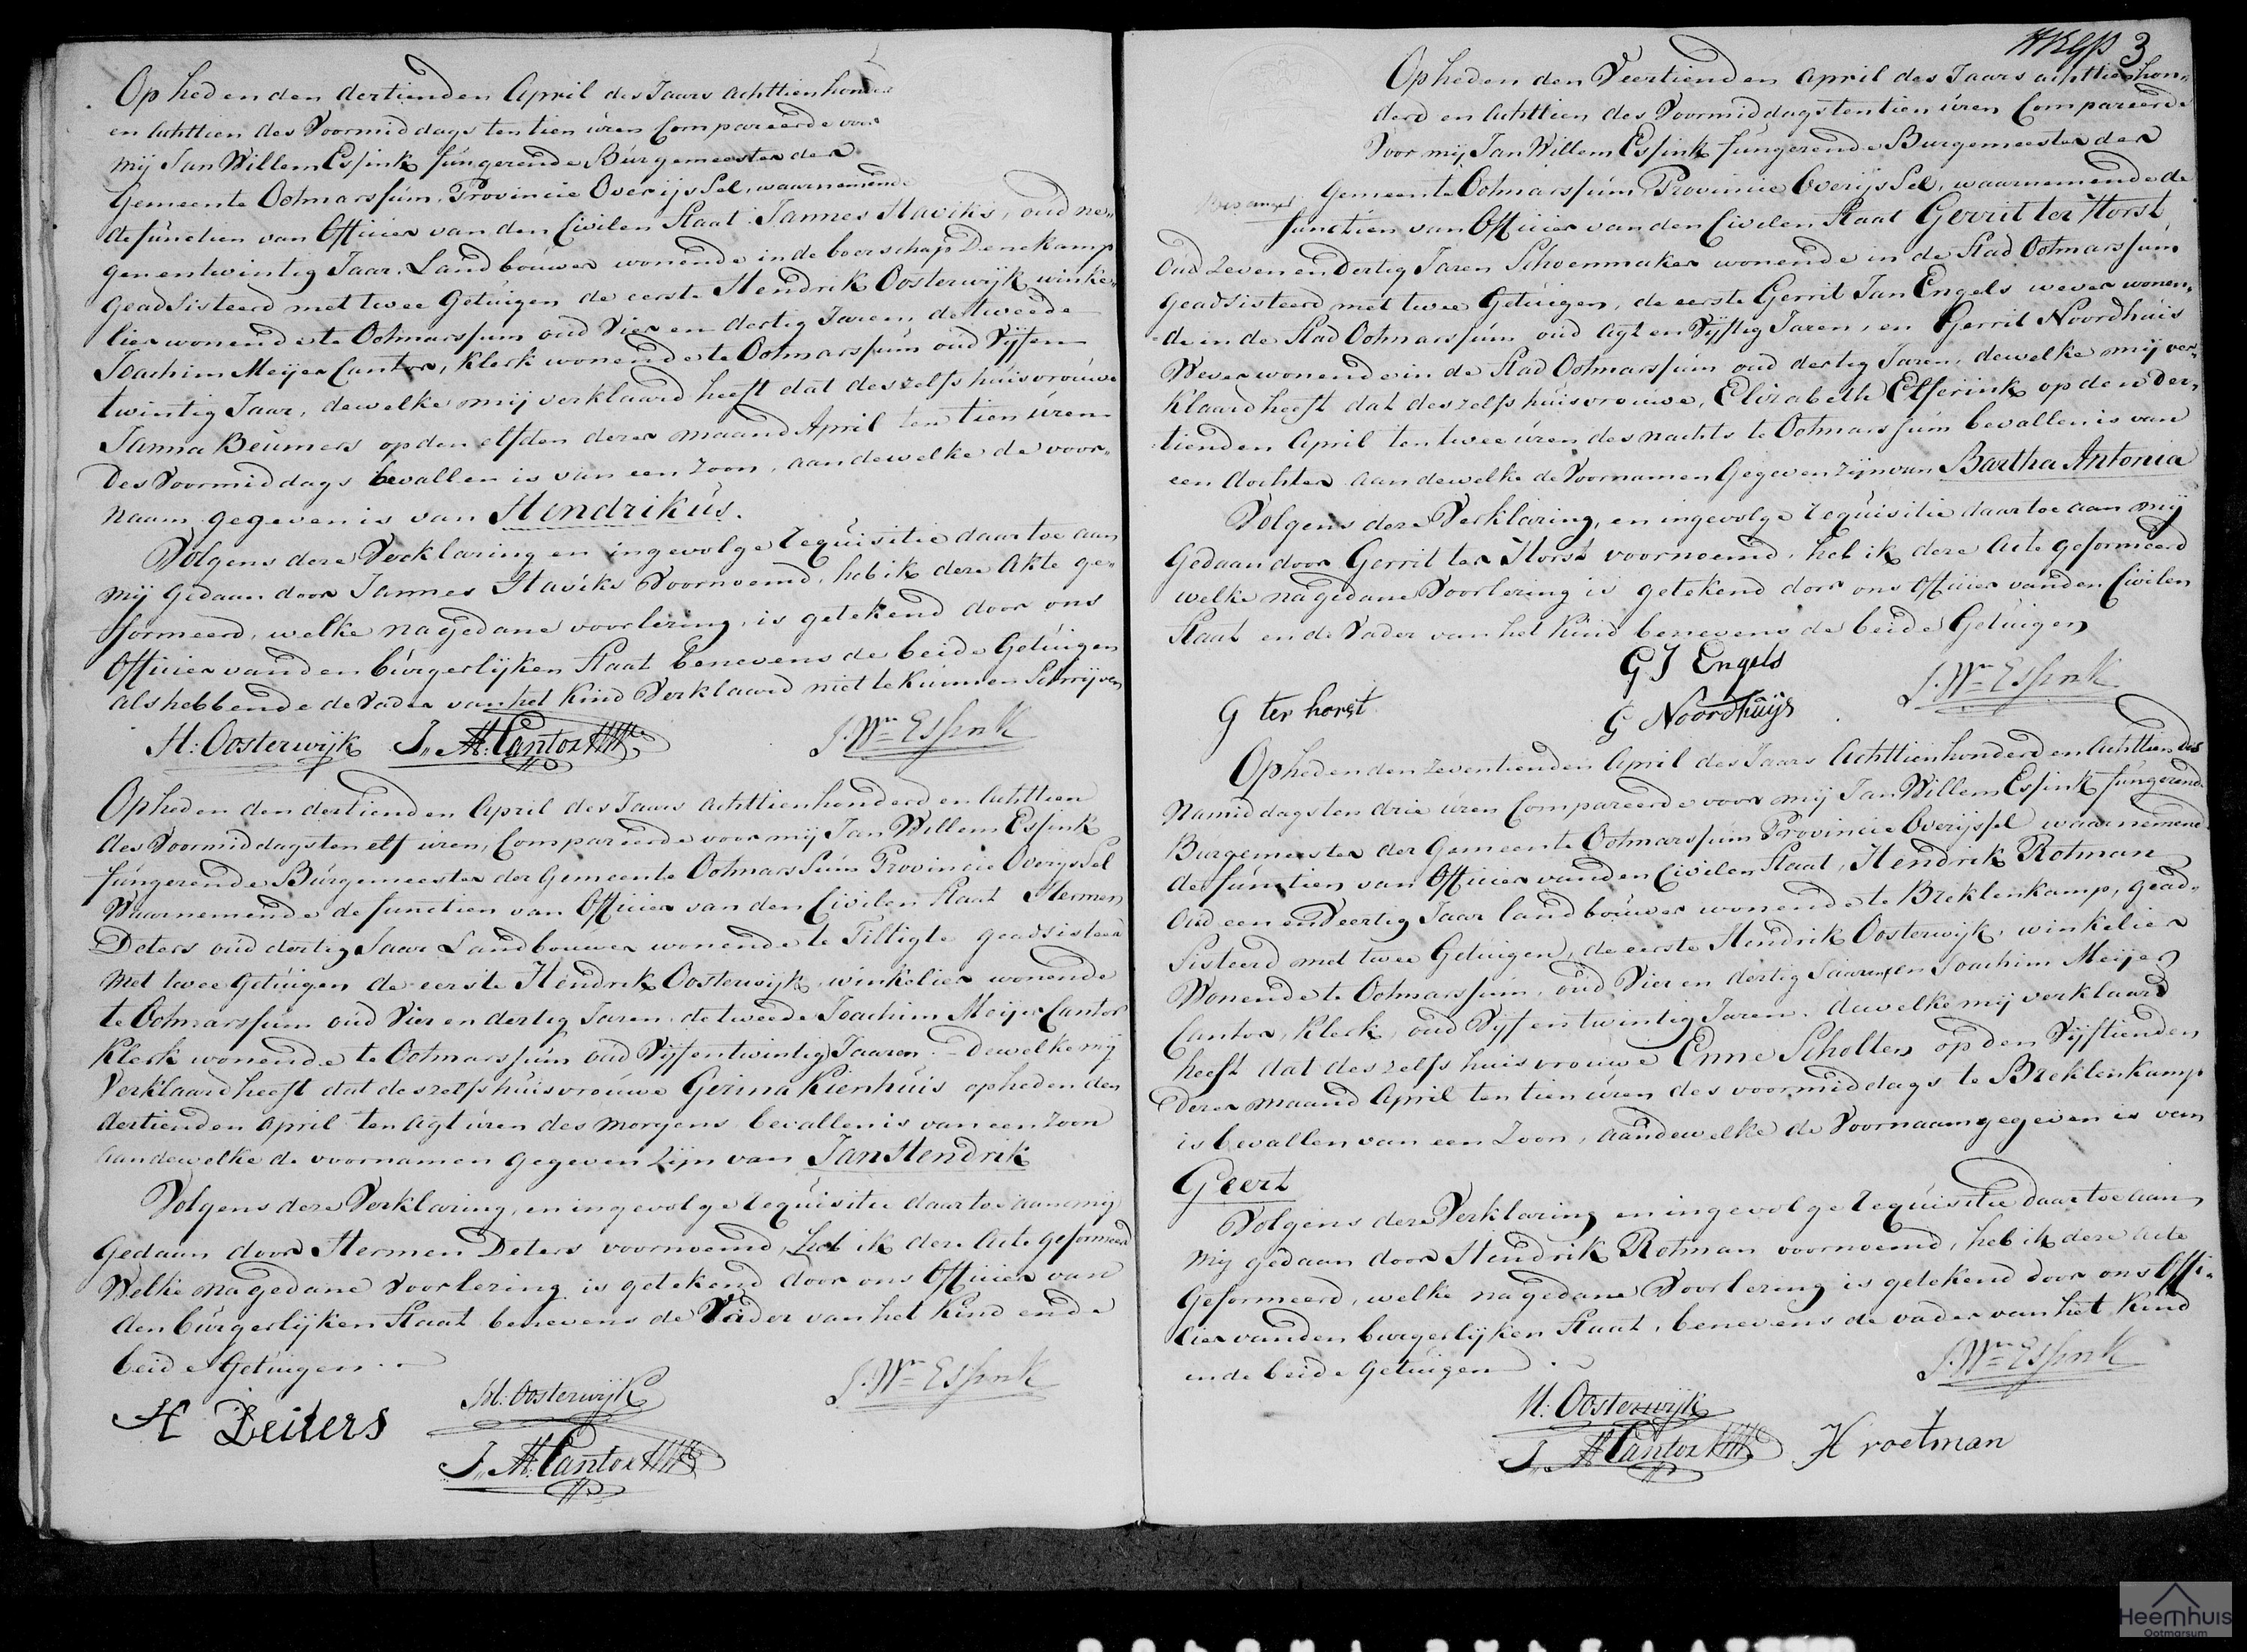 Op heden den dertienden April des Jaars achttienhonderd
en Achttien des Voormiddags ten tien úren Compareerde voor
mij Jan Willem Essink fúngerende Búrgemeester der
Gemeente Ootmarssúm, Provincie Overijssel, waarnemende
de functien van Officier van den Civilen Staat Jannes Haviks, oud ne-
gen en twintig Jaar, Landbouwer wonende in de boerschap Denekamp
geadsisteerd met twee Getúigen de eerste Hendrik Oosterwijk winke-
lier wonende te Ootmarssum oud Vier en dertig Jaren, de tweede
Joachim Meijer Cantor, Klerk wonende te Ootmarssúm oud Vijf en
twintig Jaar, dewelke mij verklaard heeft dat deszelfs húisvroúwe
Janna Beúmers op den elfden dezer maand April ten tien úren
des Voormiddags bevallen is van een Zoon, aan dewelke de voor-
naam gegeven is van Hendrikús.
Volgens deze Verklaring en ingevolge requisitie daartoe aan
mij Gedaan door Jannes Haviks Voornoemd, heb ik deze Akte ge-
formeerd, welke na gedane voorlezing, is getekend door ons
Officier van den búrgerlijken Staat benevens de beide Getúigen
als hebbende de Vader van het Kind Verklaard niet te kúnnen Schrijven
H: Oosterwijk J,, M: Cantor J: Wm Essink
Op heden den dertienden April des Jaars achttienhonderd en Achttien
des Voormiddags ten elf úren, Compareerde voor mij Jan Willem Essink
fúngerende Búrgemeester der Gemeente Ootmarssúm Provincie Overijssel
Waarnemende de functien van Officier van den Civilen Staat Hermen
Deters oud dertig Jaar Landbouwer wonende te Tilligte geadsisteerd
met twee Getúigen de eerste Hendrik Oosterwijk, winkelier wonende
te Ootmarssúm oúd Vier en dertig Jaren de tweede Joachim Meijer Cantor
Klerk wonende te Ootmarssúm oud Vijf en twintig Jaaren. dewelke mij
Verklaard heeft dat deszelfs húisvroúwe Gerina Kienhúis op heden den
dertienden April ten agt úren des morgens bevallen is van een Zoon
aan dewelke de voornamen gegeven zijn van Jan Hendrik
Volgens deze Verklaring, en ingevolge requisitie daartoe aan mij
Gedaan door Hermen Deters voornoemd, heb ik deze Acte geformeerd
Welke na gedane Voorlezing is getekend door ons Officier van
den búrgerlijken Staat benevens de Vader van het Kind en de
beide Getúigen.
H Deiters H: Oosterwijk J: Wm Essink
J,, M: Cantor
3
Op heden den Veertienden April des Jaars achttienhon-
derd en Achttien des Voormiddags ten tien úren Compareerde
Voor mij Jan Willem Essink fúngerende Burgemeester der
Gemeente Ootmarssúm Provincie Overijssel, waarnemende de
functien van Officier van den Civilen Staat Gerrit ter Horst
oud Zeven en Dertig Jaren Schoenmaker wonende in de Stad Ootmarssúm
geadsisteerd met twee Getúigen, de eerste Gerrit Jan Engels wever wonen-
de in de Stad Ootmarssúm oúd agt en Vijftig Jaren, en Gerrit Noordhúis
Wever wonende in de Stad Ootmarssúm oud dertig Jaren, dewelke mij ver-
klaard heeft dat deszelfs húisvrouwe, Elizabeth Elferink op den der-
tienden April ten twee úren des nachts te Ootmarssúm bevallen is van
een dochter aan dewelke de Voornamen Gegeven zijn van Bartha Antonia
Volgens deze Verklaring, en ingevolge requisitie daartoe aan mij
Gedaan door Gerrit ter Horst voornoemd, heb ik deze Acte geformeerd
welke na gedane Voorlezing is getekend door ons Officier van den Civilen
Staat en de Vader van het Kind benevens de beide Getúigen
G J Engels
G ter horst J: Wm Essink
G Noordhuijs
Op heden den Zeventienden April des Jaars Achttienhonderd en Achttien des
Namiddags ten drie úren Compareerde voor mij Jan Willem Essink fúngerende
Burgemeester der Gemeente Ootmarssúm Provincie Overijssel waarnemende
de fúnctien van Officier van den Civilen Staat, Hendrik Rotman
Oud een en Veertig Jaar landboúwer wonende te Breklenkamp, gead-
sisteerd met twee Getúigen, de eerste Hendrik Oosterwijk, winkelier
Wonende te Ootmarssúm, oúd Vier en dertig Jaaren, en Joachim Meijer
Cantor, Klerk, oud Vijf en twintig Jaren, dewelke mij verklaard
heeft dat deszelfs huisvrouwe Enne Scholten op den Vijftienden
dezer maand April ten tien úren des voormiddags te Breklenkamp
is bevallen van een Zoon, aan dewelke de Voornaam gegeven is van
Geert
Volgens deze Verklaring en ingevolge requisitie daartoe aan
mij gedaan door Hendrik Rotman voornoemd, heb ik deze Acte
Geformeerd, welke na gedane Voorlezing is getekend door ons Offi-
cier van den burgerlijken Staat, benevens de vader van het Kind
en de beide Getúigen
J: Wm Essink
H: Oosterwijk
J,, M: Cantor H roetman
Heemhuis
Ootmarsum